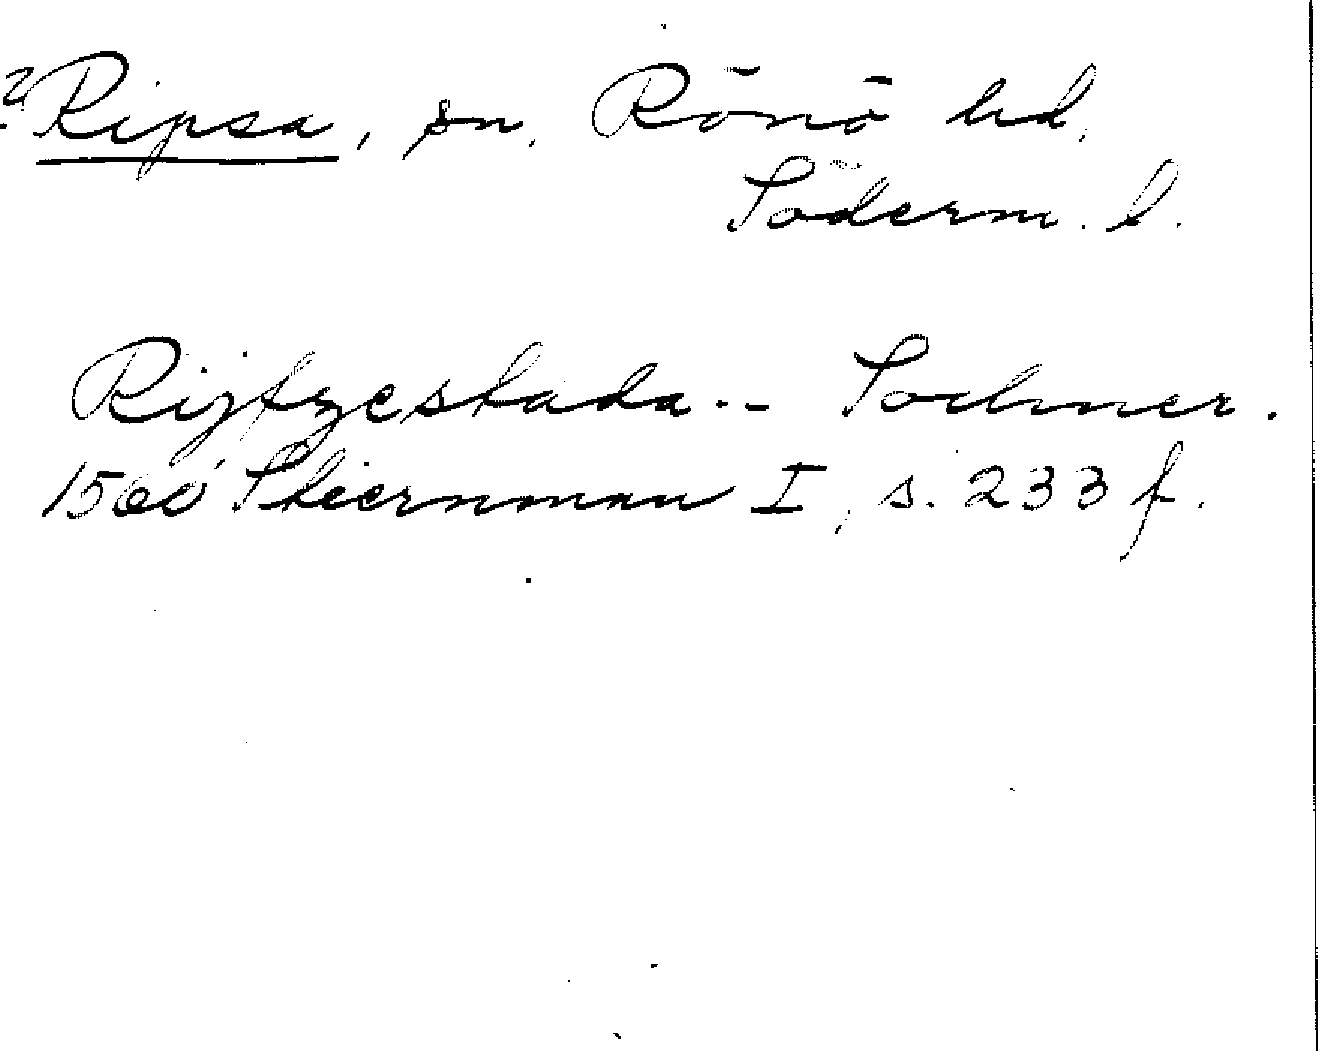 ? Ripsa, sn, Rönö hd,
Söderm. l.
Rijfzestada -- Sochner.
1560 Stiernman I, s. 233 f.